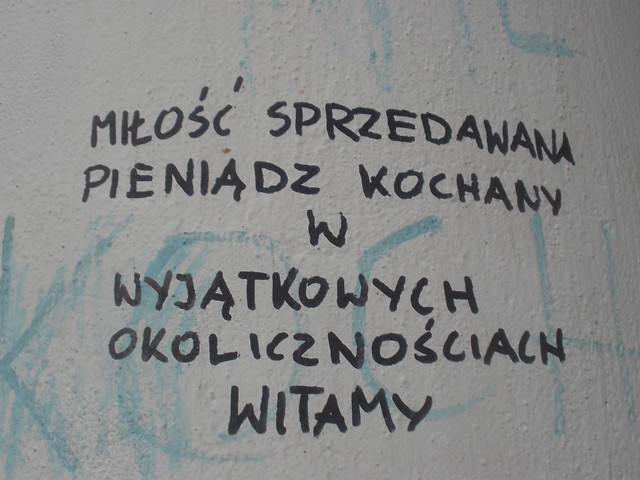 MIŁOŚĆ SPRZEDAWANA
PIENIĄDZ KOCHANY
W
WYJĄTKOWYCH
OKOLICZNOŚCIACH
WITAMY